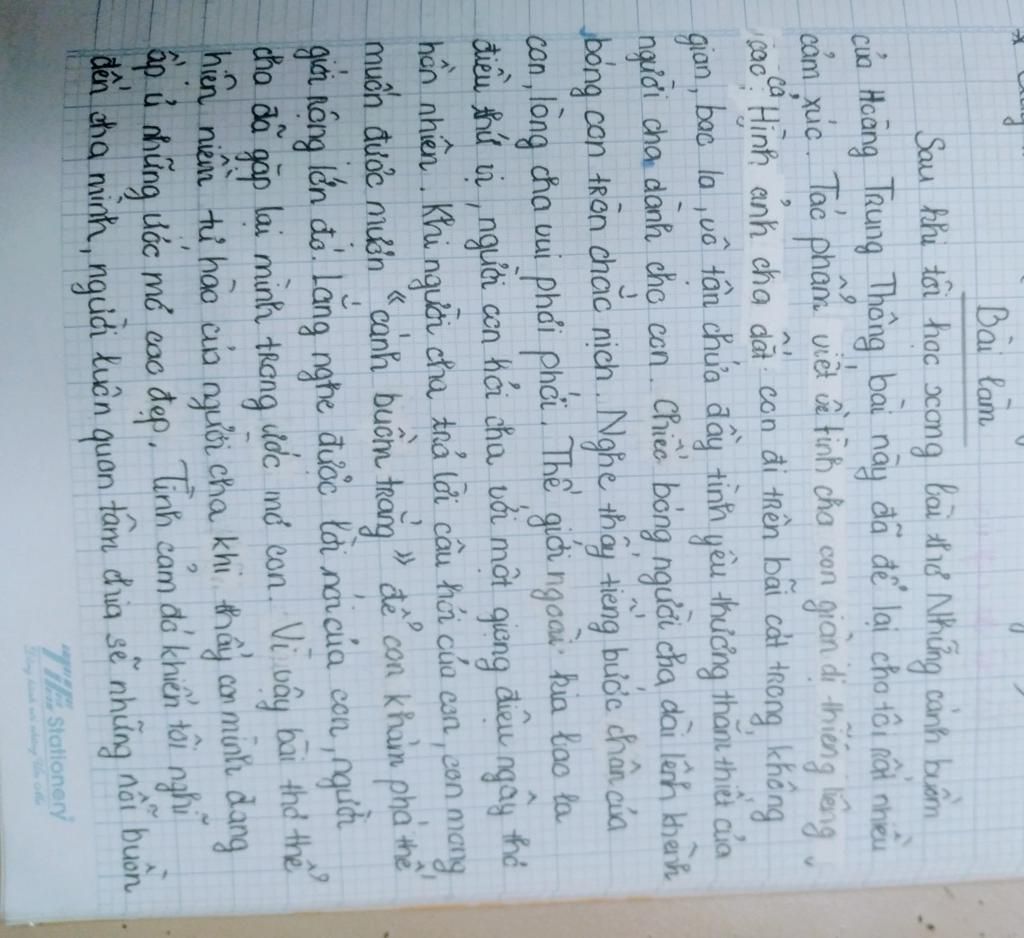 Bài làm
Sau khi tôi học xong bài thơ Những cánh buồm
của Hoàng Trung Thông bài này đã để lại cho tôi rất nhiều
cảm xúc. Tác phẩm viết về tình cha con giản dị thiêng liêng
cao cả. Hình ảnh cha dắt con đi trên bãi cát trong không
gian, bao la, vô tân chứa đầy tình yêu thương thắm thiết của
người cha dành cho con. Chiếc bóng người cha dài lênh khênh
bóng con tròn chắc nịch. Nghe thấy tiếng bước chân của
con, lòng cha vui phơi phới. Thế giới ngoài kia bao la
điều thú vị, người con hỏi cha với một giọng điệu ngây thơ
hồn nhiên. Khi người cha trả lời câu hỏi của con, con mong
muốn được mượn "cánh buồm trắng" để con khám phá thế
giới rộng lớn đó. Lắng nghe được lời nói của con, người
cha đã gặp lại mình trong ước mơ con. Vì vậy bài thơ thể
hiện niềm tự hào của người cha khi thấy con mình đang
ấp ủ những ước mơ cao đẹp. Tình cảm đó khiến tôi nghĩ
đến cha mình, người luôn quan tâm chia sẽ những nỗi buồn
TTE Stationery